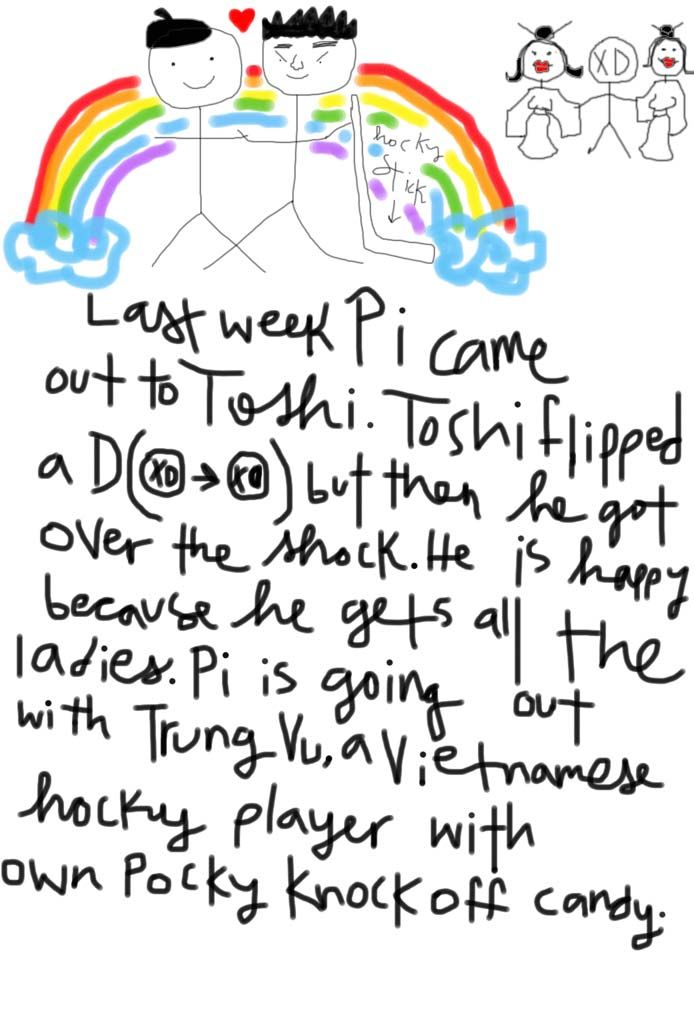 XD
hocky
stick
Last week Pi came
out to Toshi. Toshi flipped
a D(XD → XD) but then he got
over the shock. He is happy
because he gets all the
ladies. Pi is going out
with Trung Vu, a Vietnamese
hocky player with
own Pocky knock off candy.